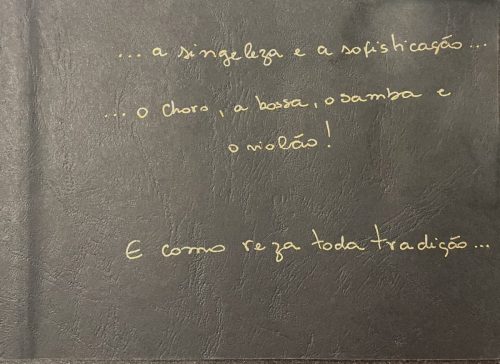 ... a singeleza e a sofisticação...
... o choro, a bossa, o samba e
o violão!
E como reza toda tradição...